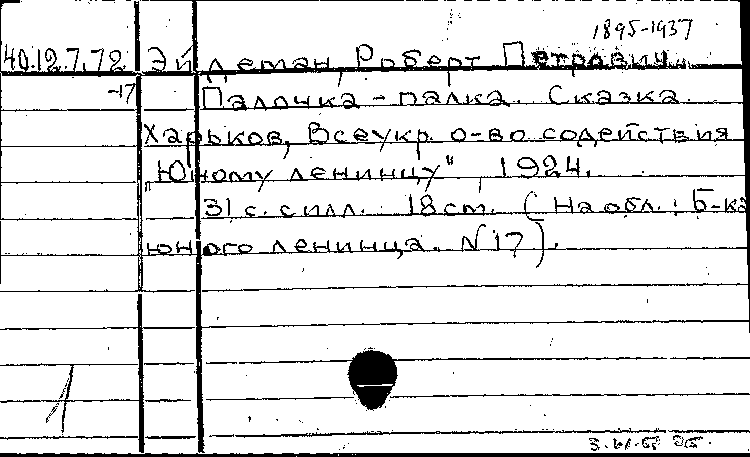 1895-1937
40.12.7.72 Эйдеман, Роберт Петрович.
-17 Палочка-палка. Сказка.
Харьков, Всеукр. о-во содействия
„Юному ленинцу", 1924.
31 с. с илл. 18 cm. (На обл.: Б-ка
юного ленинца. N 17).